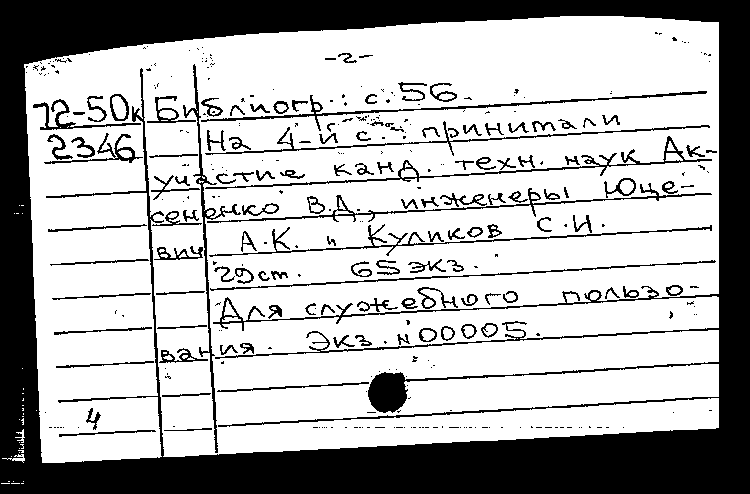 -2-
72-50к Библиогр.: с. 56.
2346 На 4-й с.: принимали
участие канд. техн. наук Ак-
сененко В.Д., инженеры Юце-
вич А.К. и Куликов С.И.
20 ст. 65 экз.
Для служебного пользо-
вания. Экз. N 00005.
4